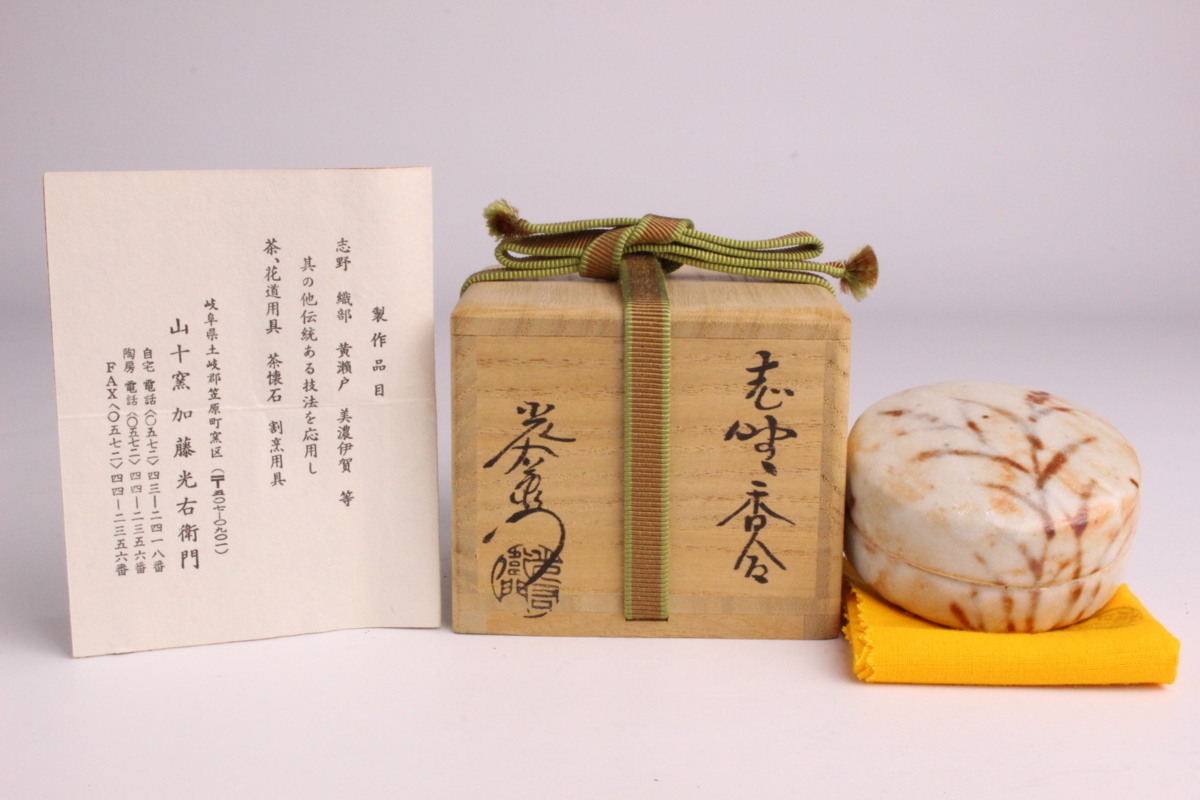 製作品目
志野 織部 黄瀬戸 美濃伊賀 等
其の他伝統ある技法を応用し
茶、花道用具 茶懐石 割烹用具
岐阜県土岐郡笠原町窯区(〒五〇七―〇九〇一)
山十窯 加藤光右衛門
自宅 電話〈〇五七二〉四三―二四一八番
陶房 電話〈〇五七二〉四四―二三五六番
FAX〈〇五七二〉四四―二三五六番
志野 香合
光右衛門